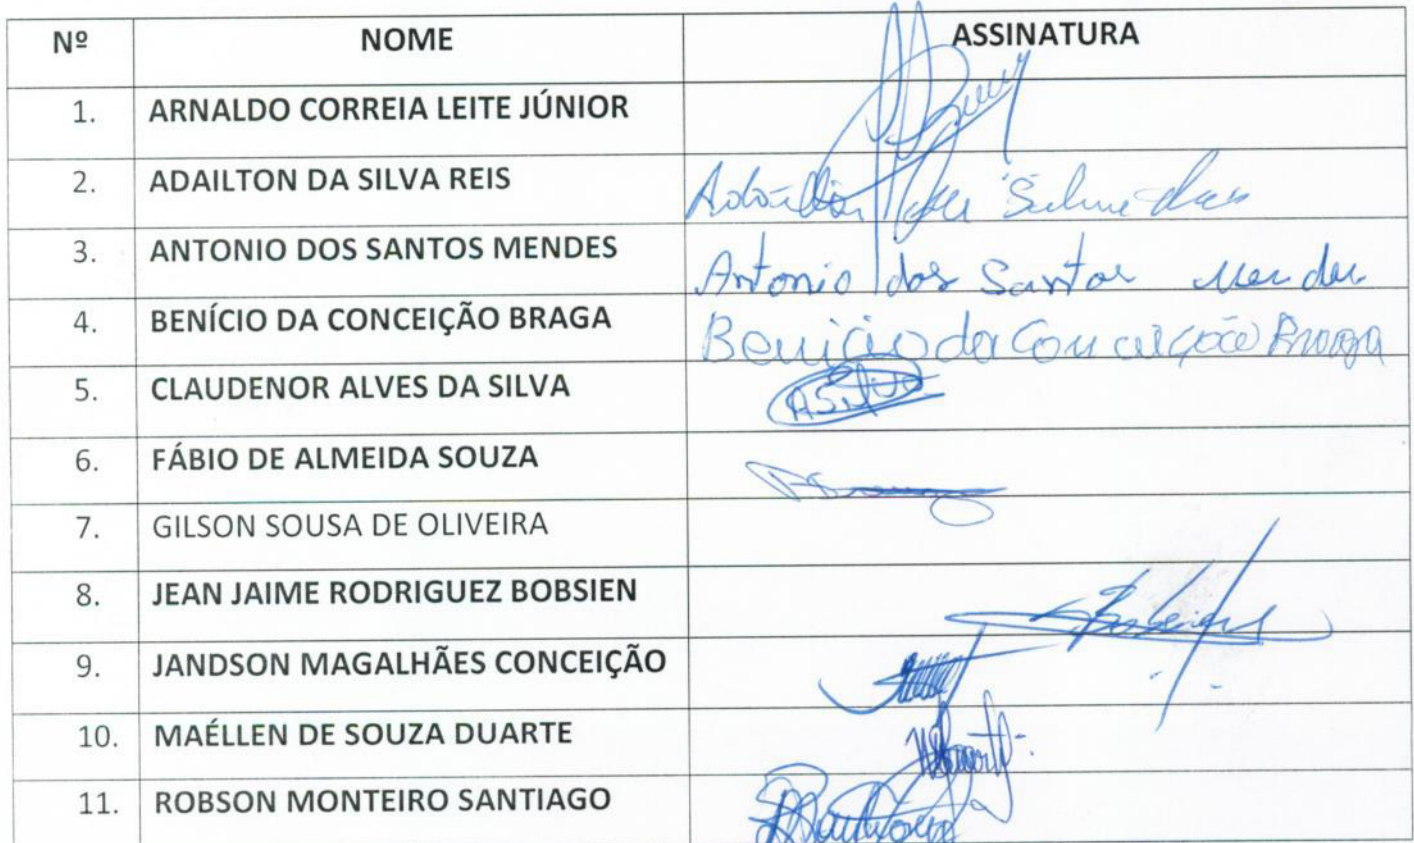 Nº NOME ASSINATURA
1. ARNALDO CORREIA LEITE JÚNIOR
2. ADAILTON DA SILVA REIS
3. ANTONIO DOS SANTOS MENDES Antonio dos Santos Mendes
4. BENÍCIO DA CONCEIÇÃO BRAGA Benicio da Conceição Braga
5. CLAUDENOR ALVES DA SILVA ASilva
6. FÁBIO DE ALMEIDA SOUZA
7. GILSON SOUSA DE OLIVEIRA
8. JEAN JAIME RODRIGUEZ BOBSIEN
9. JANDSON MAGALHÃES CONCEIÇÃO
10. MAÉLLEN DE SOUZA DUARTE
11. ROBSON MONTEIRO SANTIAGO